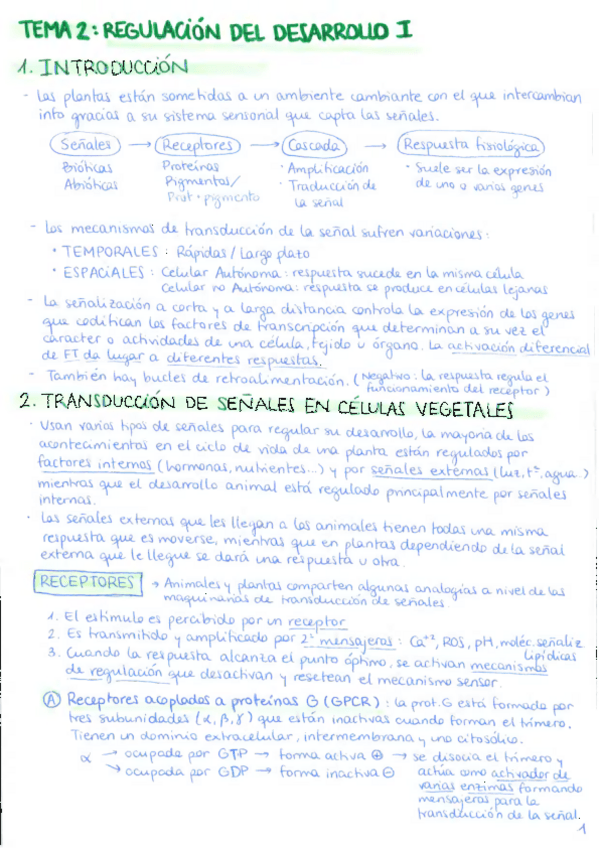 TEMA 2: REGULACIÓN DEL DESARROLLO I
1. INTRODUCCIÓN
- Las plantas están sometidas a un ambiente cambiante con el que intercambian
info gracias a su sistema sensorial que capta las señales.
Señales → Receptores → Cascada → Respuesta fisiológica
Bióticas Proteínas · Amplificación · Suele ser la expresión
Abióticas Pigmentos/ · Traducción de de uno o varios genes
Prot + pigmento la señal
- Los mecanismos de transducción de la señal sufren variaciones:
· TEMPORALES: Rápidas / Largo plazo
· ESPACIALES: Celular Autónoma: respuesta sucede en la misma célula
Celular no Autónoma: respuesta se produce en células lejanas
- La señalización a corta y a larga distancia controla la expresión de los genes
que codifican los factores de transcripción que determinan a su vez el
carácter o actividades de una célula, tejido u órgano. La activación diferencial
de FT da lugar a diferentes respuestas.
- También hay bucles de retroalimentación. (Negativo: la respuesta regula el
funcionamiento del receptor)
2. TRANSDUCCIÓN DE SEÑALES EN CÉLULAS VEGETALES
· Usan varios tipos de señales para regular su desarrollo, la mayoría de los
acontecimientos en el ciclo de vida de una planta están regulados por
factores internos (hormonas, nutrientes...) y por señales externas (luz, tª, agua..)
mientras que el desarrollo animal está regulado principalmente por señales
internas.
· Las señales externas que les llegan a los animales tienen todas una misma
respuesta que es moverse, mientras que en plantas dependiendo de la señal
externa que le llegue se dará una respuesta u otra.
RECEPTORES → Animales y plantas comparten algunas analogías a nivel de las
maquinarias de transducción de señales
1. El estímulo es percibido por un receptor
2. Es transmitido y amplificado por 2ºˢ mensajeros: Ca⁺², ROS, pH, moléc. señaliz.
lipídicas
3. Cuando la respuesta alcanza el punto óptimo, se activan mecanismos
de regulación que desactivan y resetean el mecanismo sensor.
Ⓐ Receptores acoplados a proteínas G (GPCR): la prot. G está formada por
tres subunidades (α, β, γ) que están inactivas cuando forman el trímero.
Tienen un dominio extracelular, intermembrana y uno citosólico.
α → ocupada por GTP → forma activa ⊕ → se disocia el trímero y
→ ocupada por GDP → forma inactiva ⊖ actúa como activador de
varias enzimas formando
mensajeros para la
transducción de la señal.
1